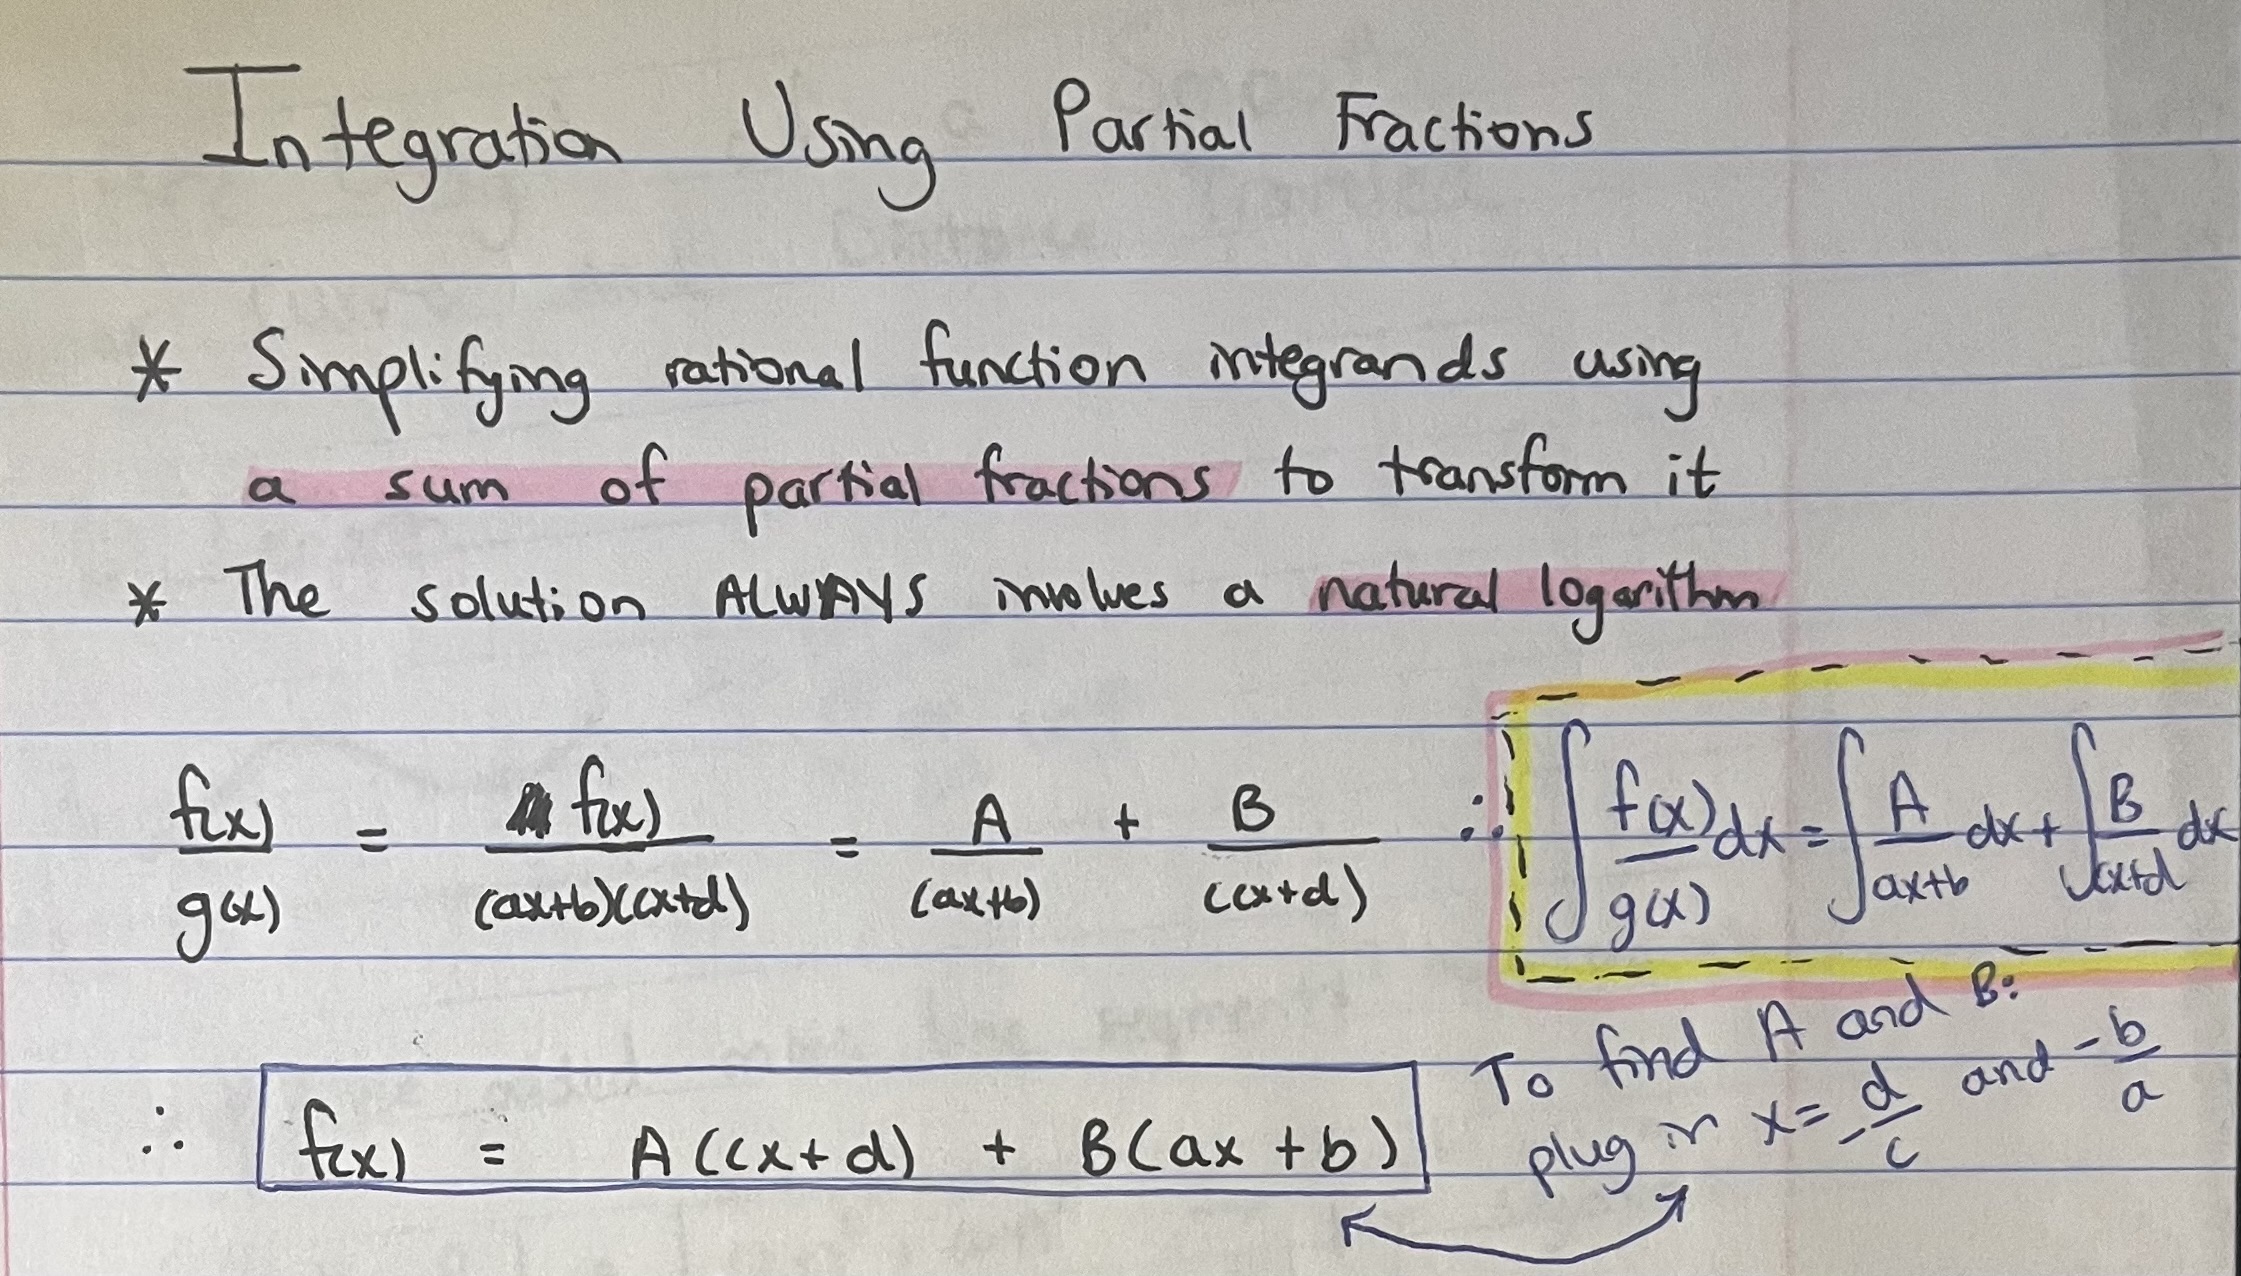 Integration Using Partial Fractions
* Simplifying rational function integrands using
a sum of partial fractions to transform it
* The solution ALWAYS involves a natural logarithm
f(x)/g(x) = f(x)/(ax+b)(cx+d) = A/(ax+b) + B/(cx+d) ∴ ∫ f(x)/g(x) dx = ∫ A/ax+b dx + ∫ B/cx+d dx
∴ f(x) = A(cx+d) + B(ax+b)
To find A and B:
plug in x = -d/c and -b/a